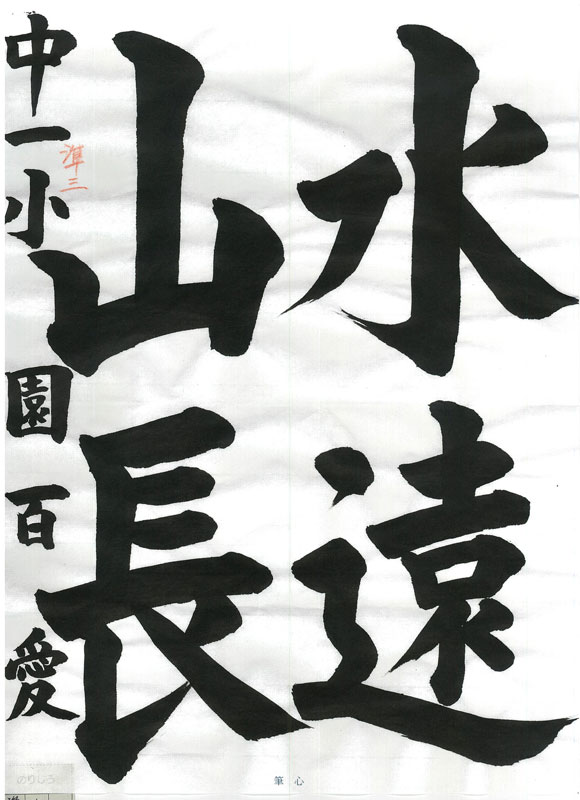 水遠
山長
中一小園百愛
準三
のりしろ
筆心